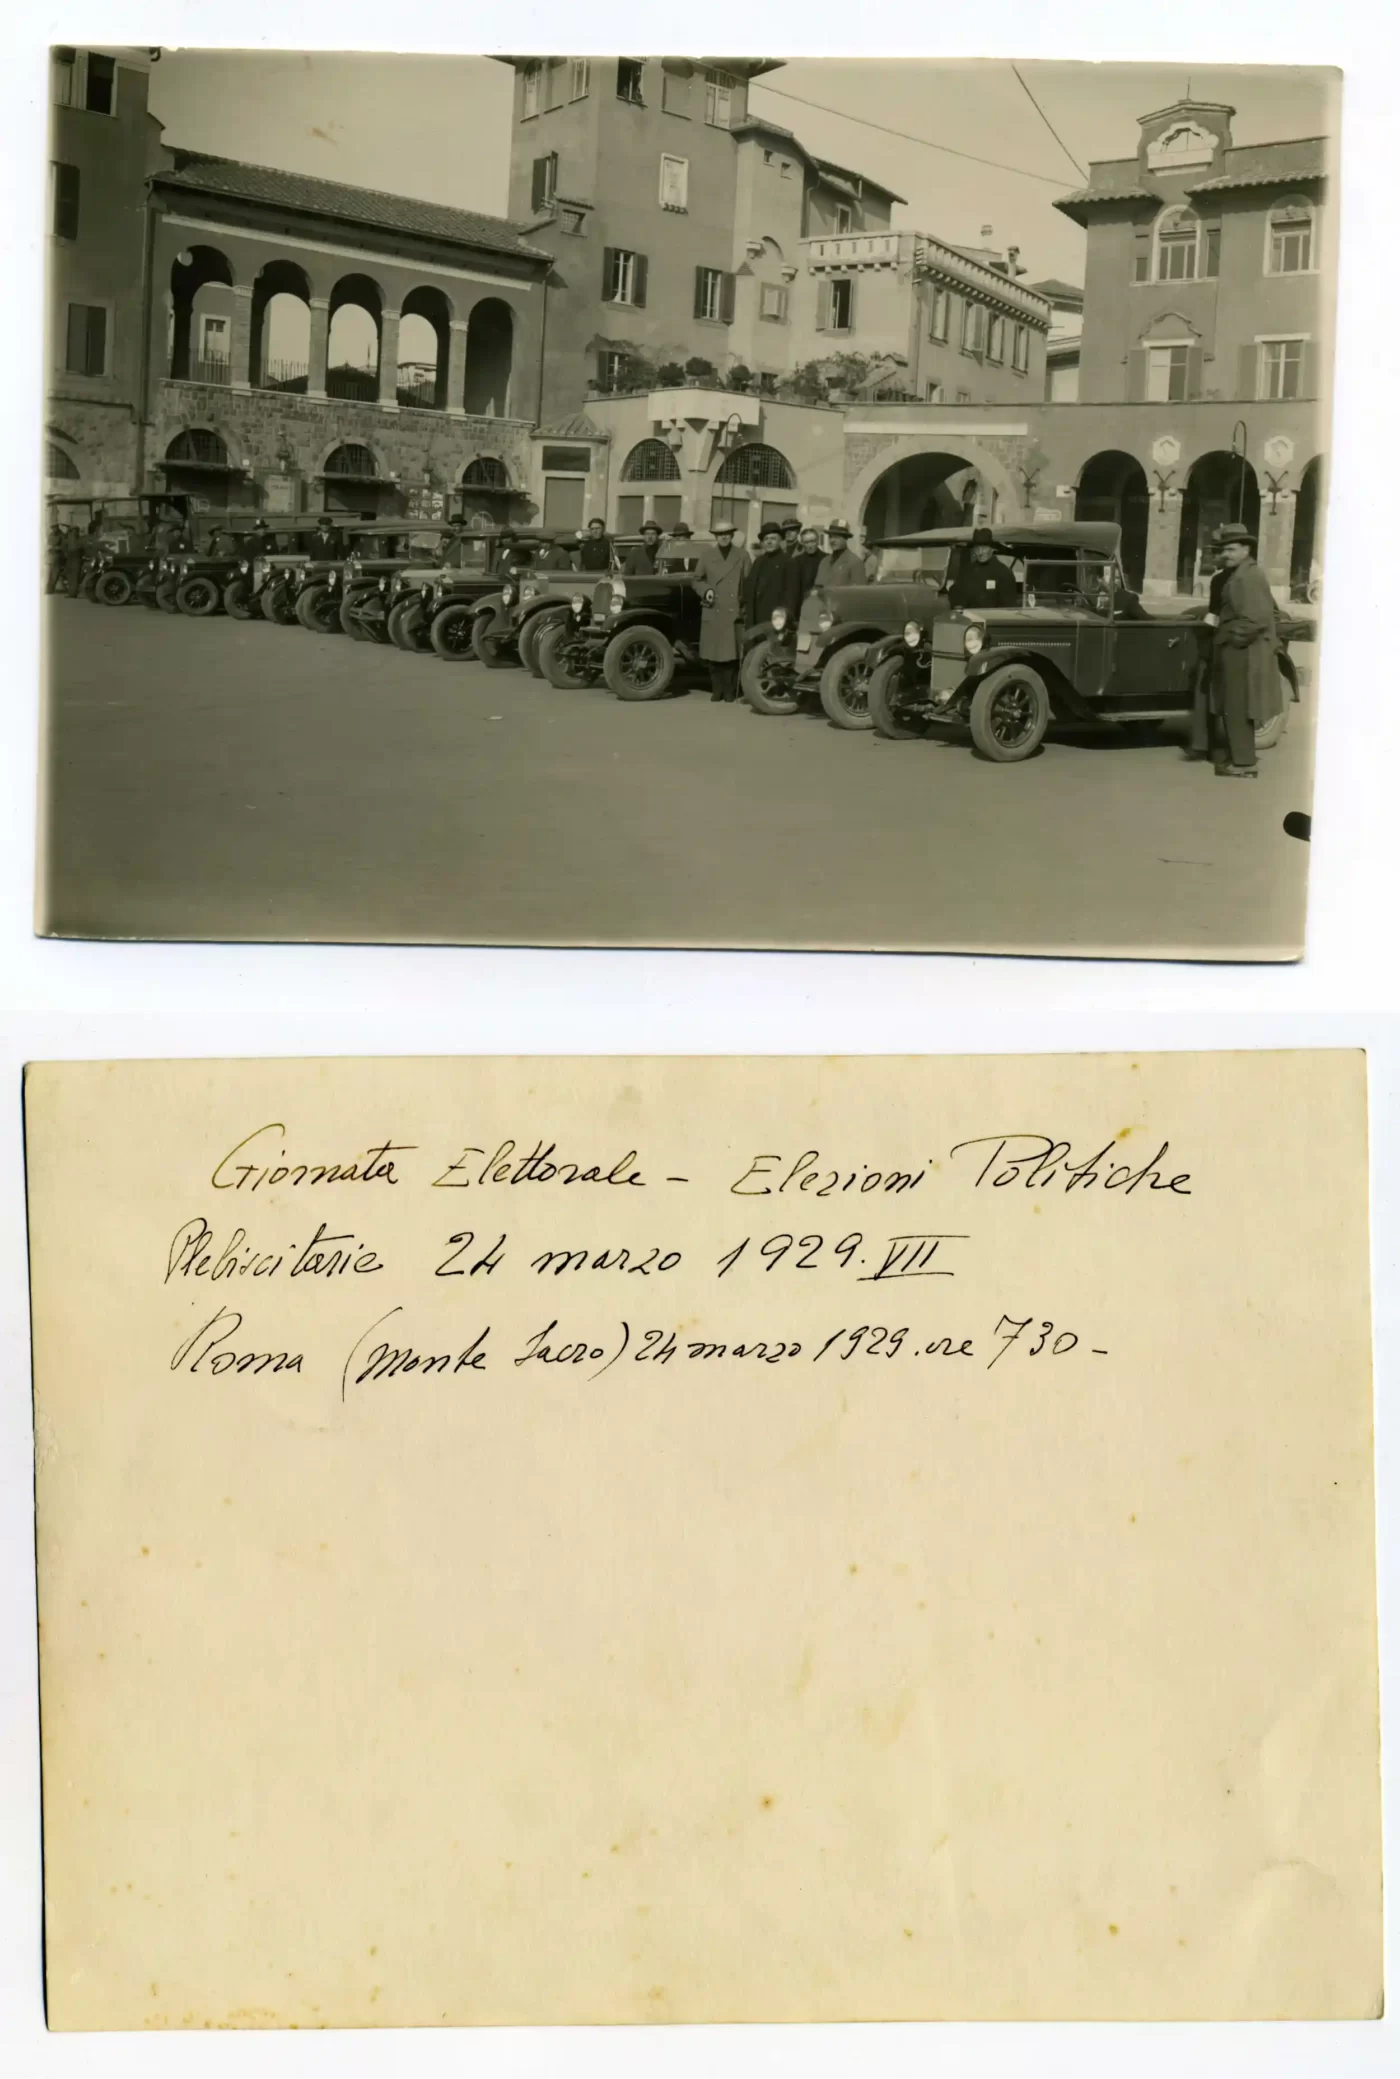 Giornata Elettorale - Elezioni Politiche
Plebiscitarie 24 marzo 1929. VII
Roma (Monte Sacro) 24 marzo 1929. ore 730 -